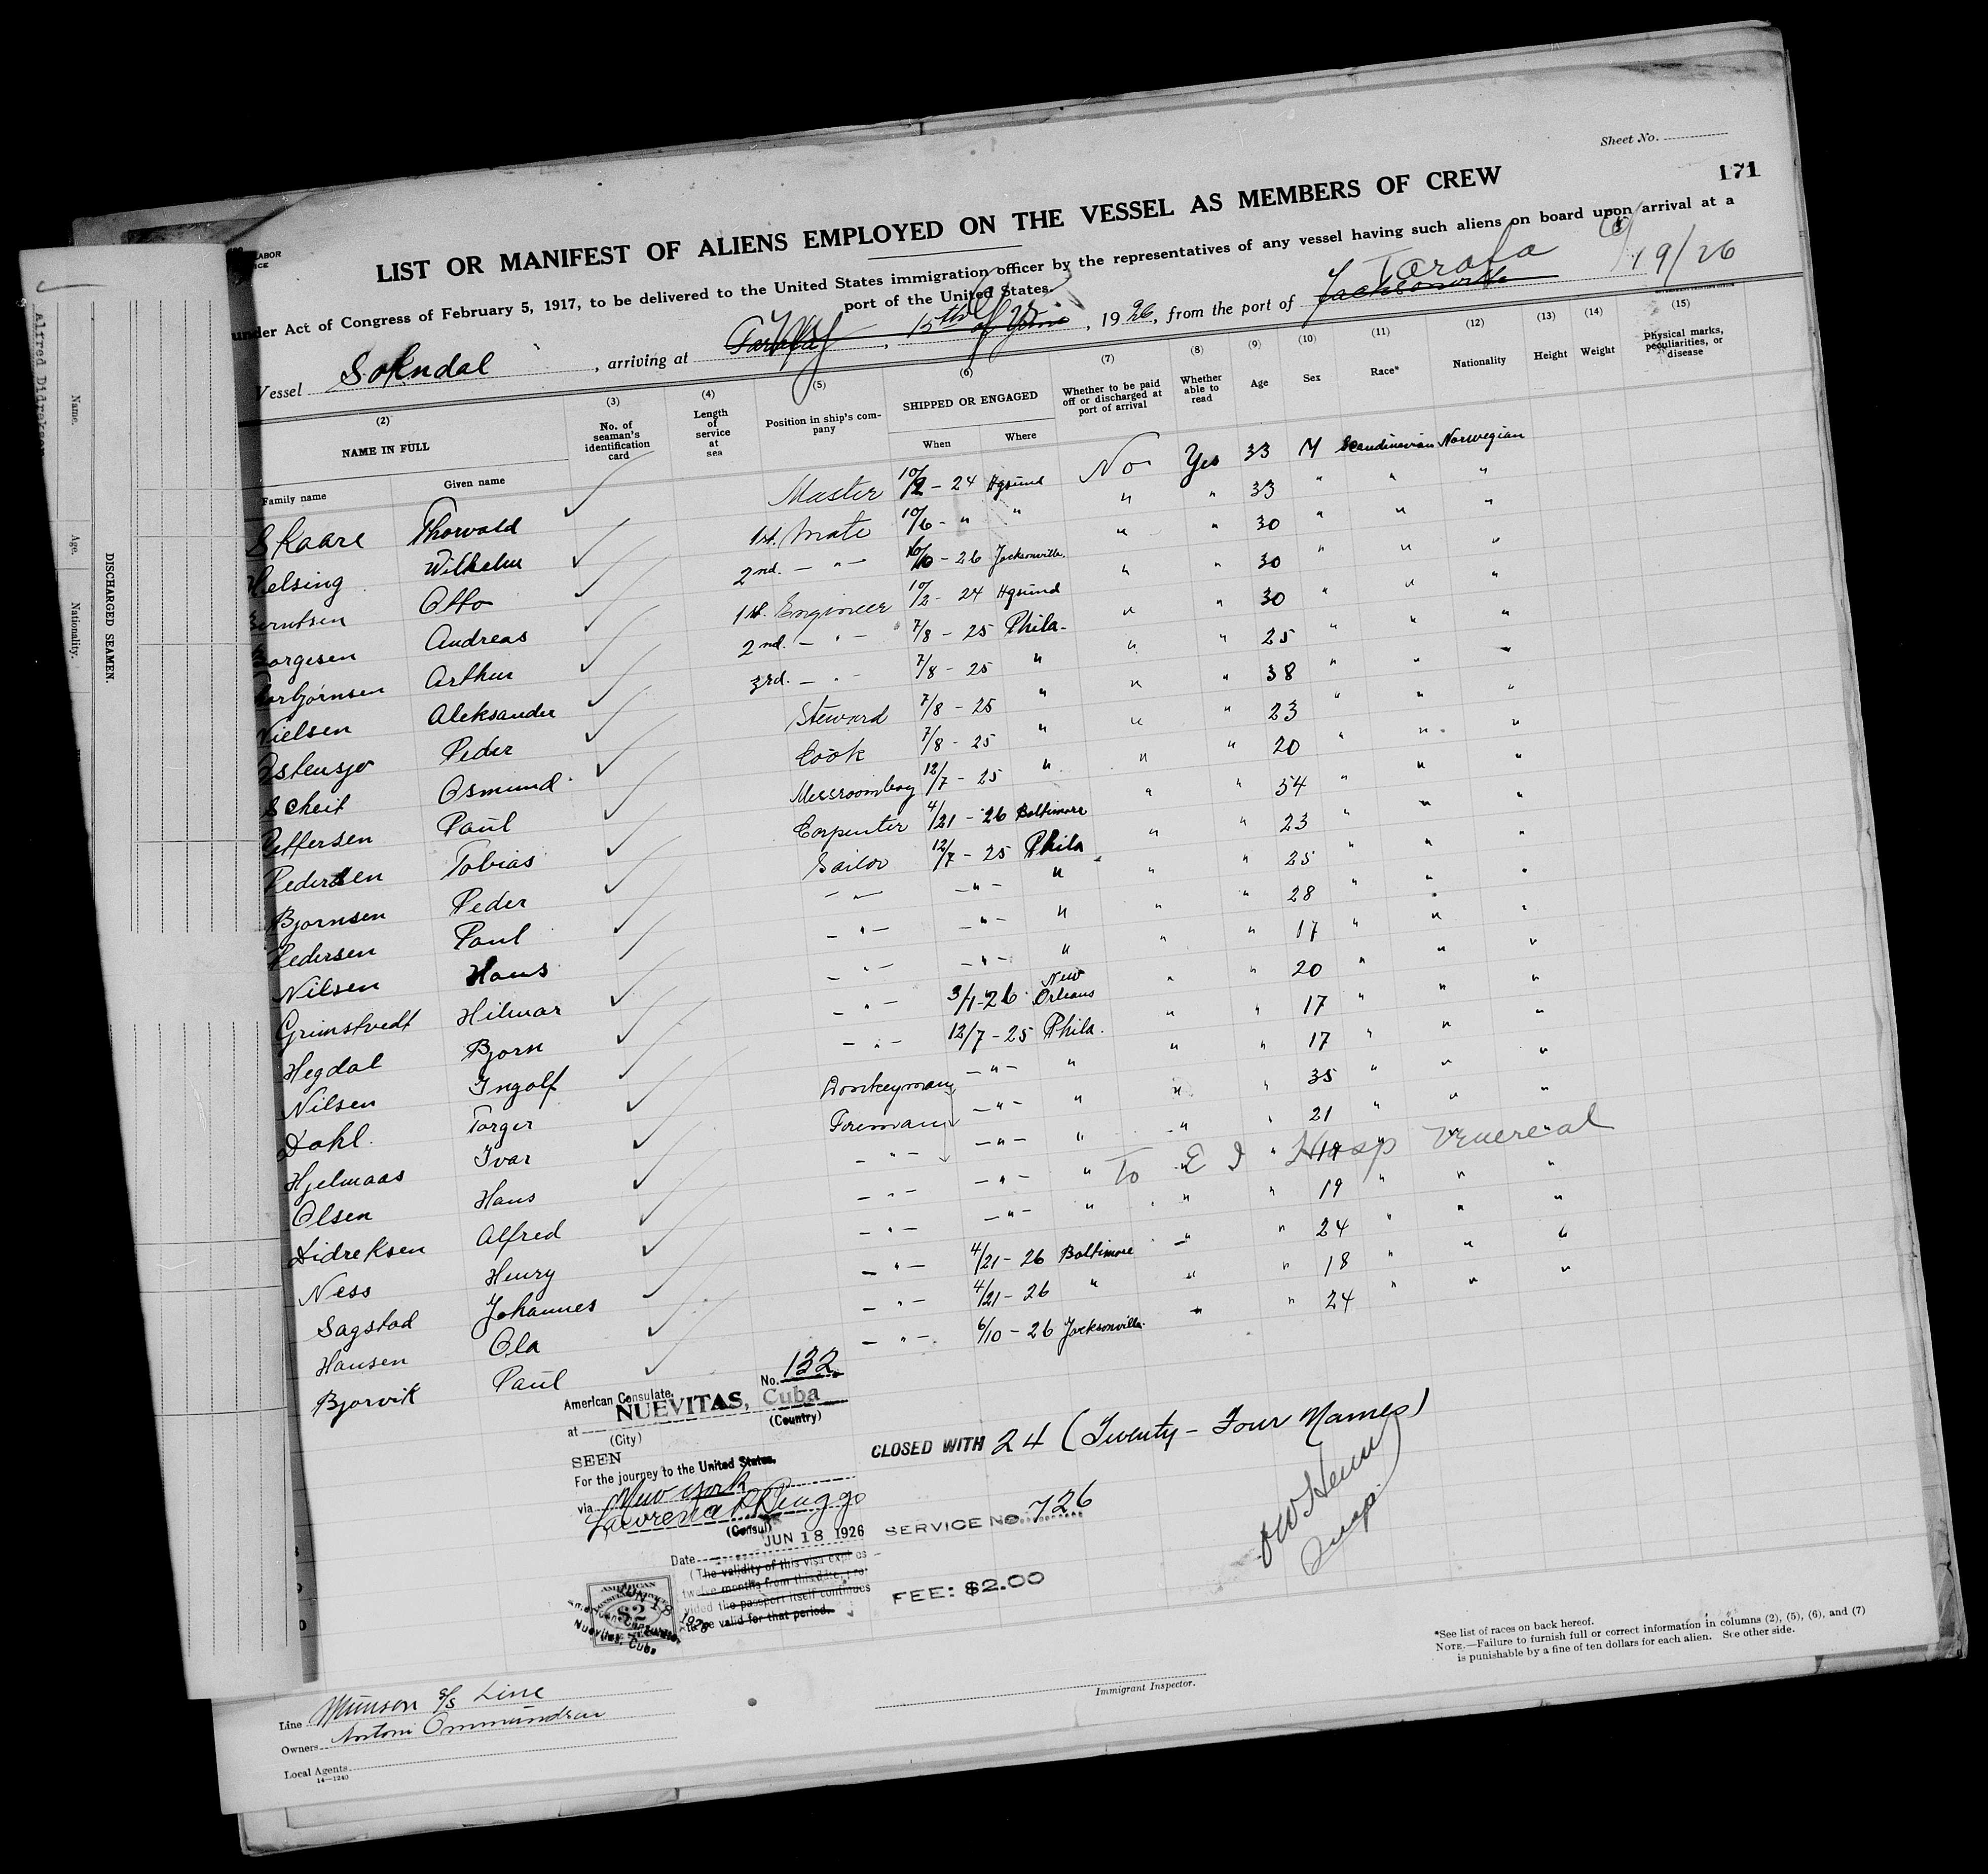 Sheet No.
171
LIST OR MANIFEST OF ALIENS EMPLOYED ON THE VESSEL AS MEMBERS OF CREW
under Act of Congress of February 5, 1917, to be delivered to the United States immigration officer by the representatives of any vessel having such aliens on board upon arrival at a
port of the United States
Tarafa 19/26
Vessel Sokndal, arriving at Tarafa, 15th of June, 1926, from the port of Jacksonville
(2) (3) (4) (5) (6) (7) (8) (9) (10) (11) (12) (13) (14) (15)
NAME IN FULL No. of seaman's identification card Length of service at sea Position in ship's company SHIPPED OR ENGAGED Whether to be paid off or discharged at port of arrival Whether able to read Age Sex Race* Nationality Height Weight Physical marks, peculiarities, or disease
Family name Given name When Where
Skaare Thorvald Master 10/2 - 24 Hgsund No Yes 33 M Scandinavian Norwegian
Helsing Wilhelm 1st. Mate 10/6 - " " " " 33 " " "
Berntsen Otto 2nd. - " - 6/10 - 26 Jacksonville. " " 30 " " "
Borgesen Andreas 1st. Engineer 10/2 - 24 Hgsund " " 30 " " "
Torbjornsen Arthur 2nd. - " - 7/8 - 25 Phila. " " 30 " " "
Nielsen Aleksander 3rd. - " - 7/8 - 25 " " " 25 " " "
Ostensjo Peder Steward 7/8 - 25 " " " 38 " " "
Scheit Osmund Cook 7/8 - 25 " " " 23 " " "
Paul Messroomboy 12/7 - 25 " " " 20 " " "
Pedersen Tobias Carpenter 4/21 - 26 Baltimore " " 54 " " "
Bjornsen Peder Sailor 12/7 - 25 Phila " " 23 " " "
Pedersen Paul - " - - " - " " " 25 " " "
Nilsen Hans - " - - " - " " " 28 " " "
Grimstvedt Hilmar - " - - " - " " " 17 " " "
Hegdal Bjorn - " - 3/1-26 New Orleans " " 20 " " "
Nilsen Ingolf - " - 12/7 - 25 Phila. " " 17 " " "
Dahl. Torger Donkeyman - " - " " " 17 " " "
Hjelmaas Ivar Fireman - " - " " " 35 " " "
Olsen Hans - " - - " - " " " 21 " " "
Didreksen Alfred - " - - " - " To E I Hosp Venereal
Ness Henry - " - - " - " " " 19 " " "
Sagstad Johannes - " - 4/21 - 26 Baltimore " " 24 " " "
Hansen Ola - " - 4/21 - 26 " " " 18 " " "
Bjorvik Paul - " - 6/10 - 26 Jacksonville. " " 24 " " "
American Consulate, No. 132
at NUEVITAS, Cuba
(City) (Country)
SEEN
For the journey to the United States,
via New York
(Consul)
Date JUN 18 1926
(The validity of this visa expires
twelve months from this date, pro-
vided the passport itself continues
to be valid for that period.
CLOSED WITH 24 (Twenty-Four Names)
SERVICE No. 726
FEE: $2.00
Insp
AMERICAN
$2
JUN 18 1926
American Consulate
Nuevitas, Cuba
*See list of races on back hereof.
NOTE.—Failure to furnish full or correct information in columns (2), (5), (6), and (7)
is punishable by a fine of ten dollars for each alien. See other side.
Immigrant Inspector.
Line Munson S/S Line
Owners Ommundsen
Local Agents
14—1240
DISCHARGED SEAMEN.
Name. Age. Nationality.
Alfred Didreksen